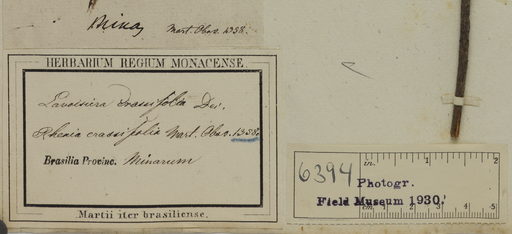 Minas Mart. Obss. 1338.
HERBARIUM REGIUM MONACENSE.
Lavoisiera crassifolia Dec.
Rhexia crassifolia Mart. Obss. 1338.
Brasilia Provinc. Minarum
Martii iter brasiliense.
6394
in. 1 2
Photogr.
Field Museum 1930.
cm. 1 2 3 4 5